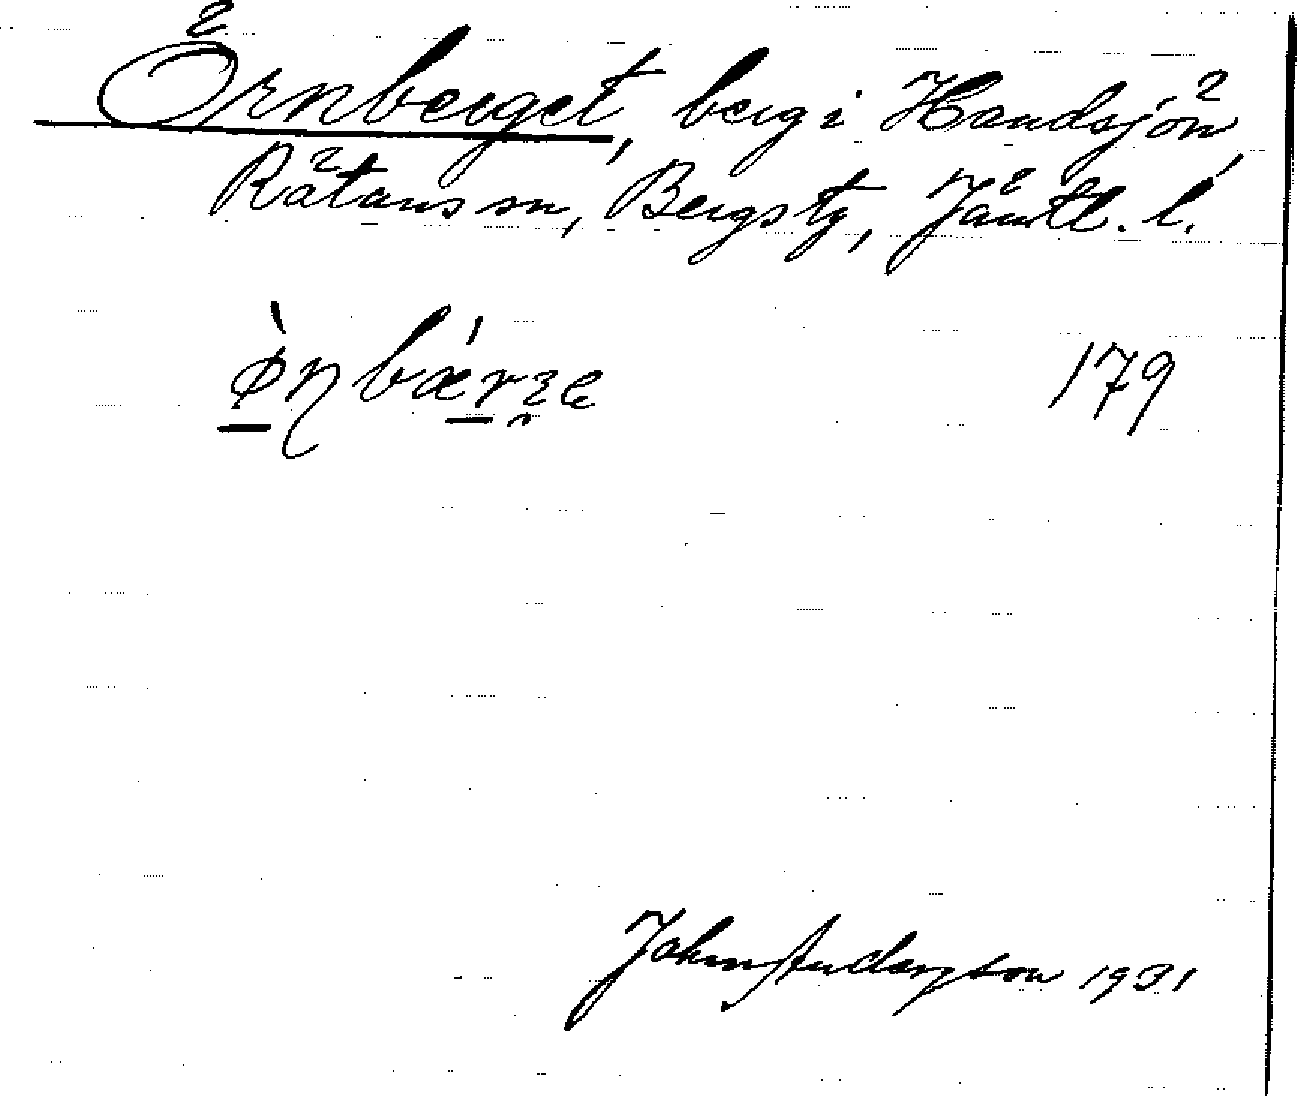 Örnberget, berg i Handsjön,
Rätans sn, Bergs tg, Jämtl. l.
ø̀ṇbǽrʒe 179
John Andersson 1931